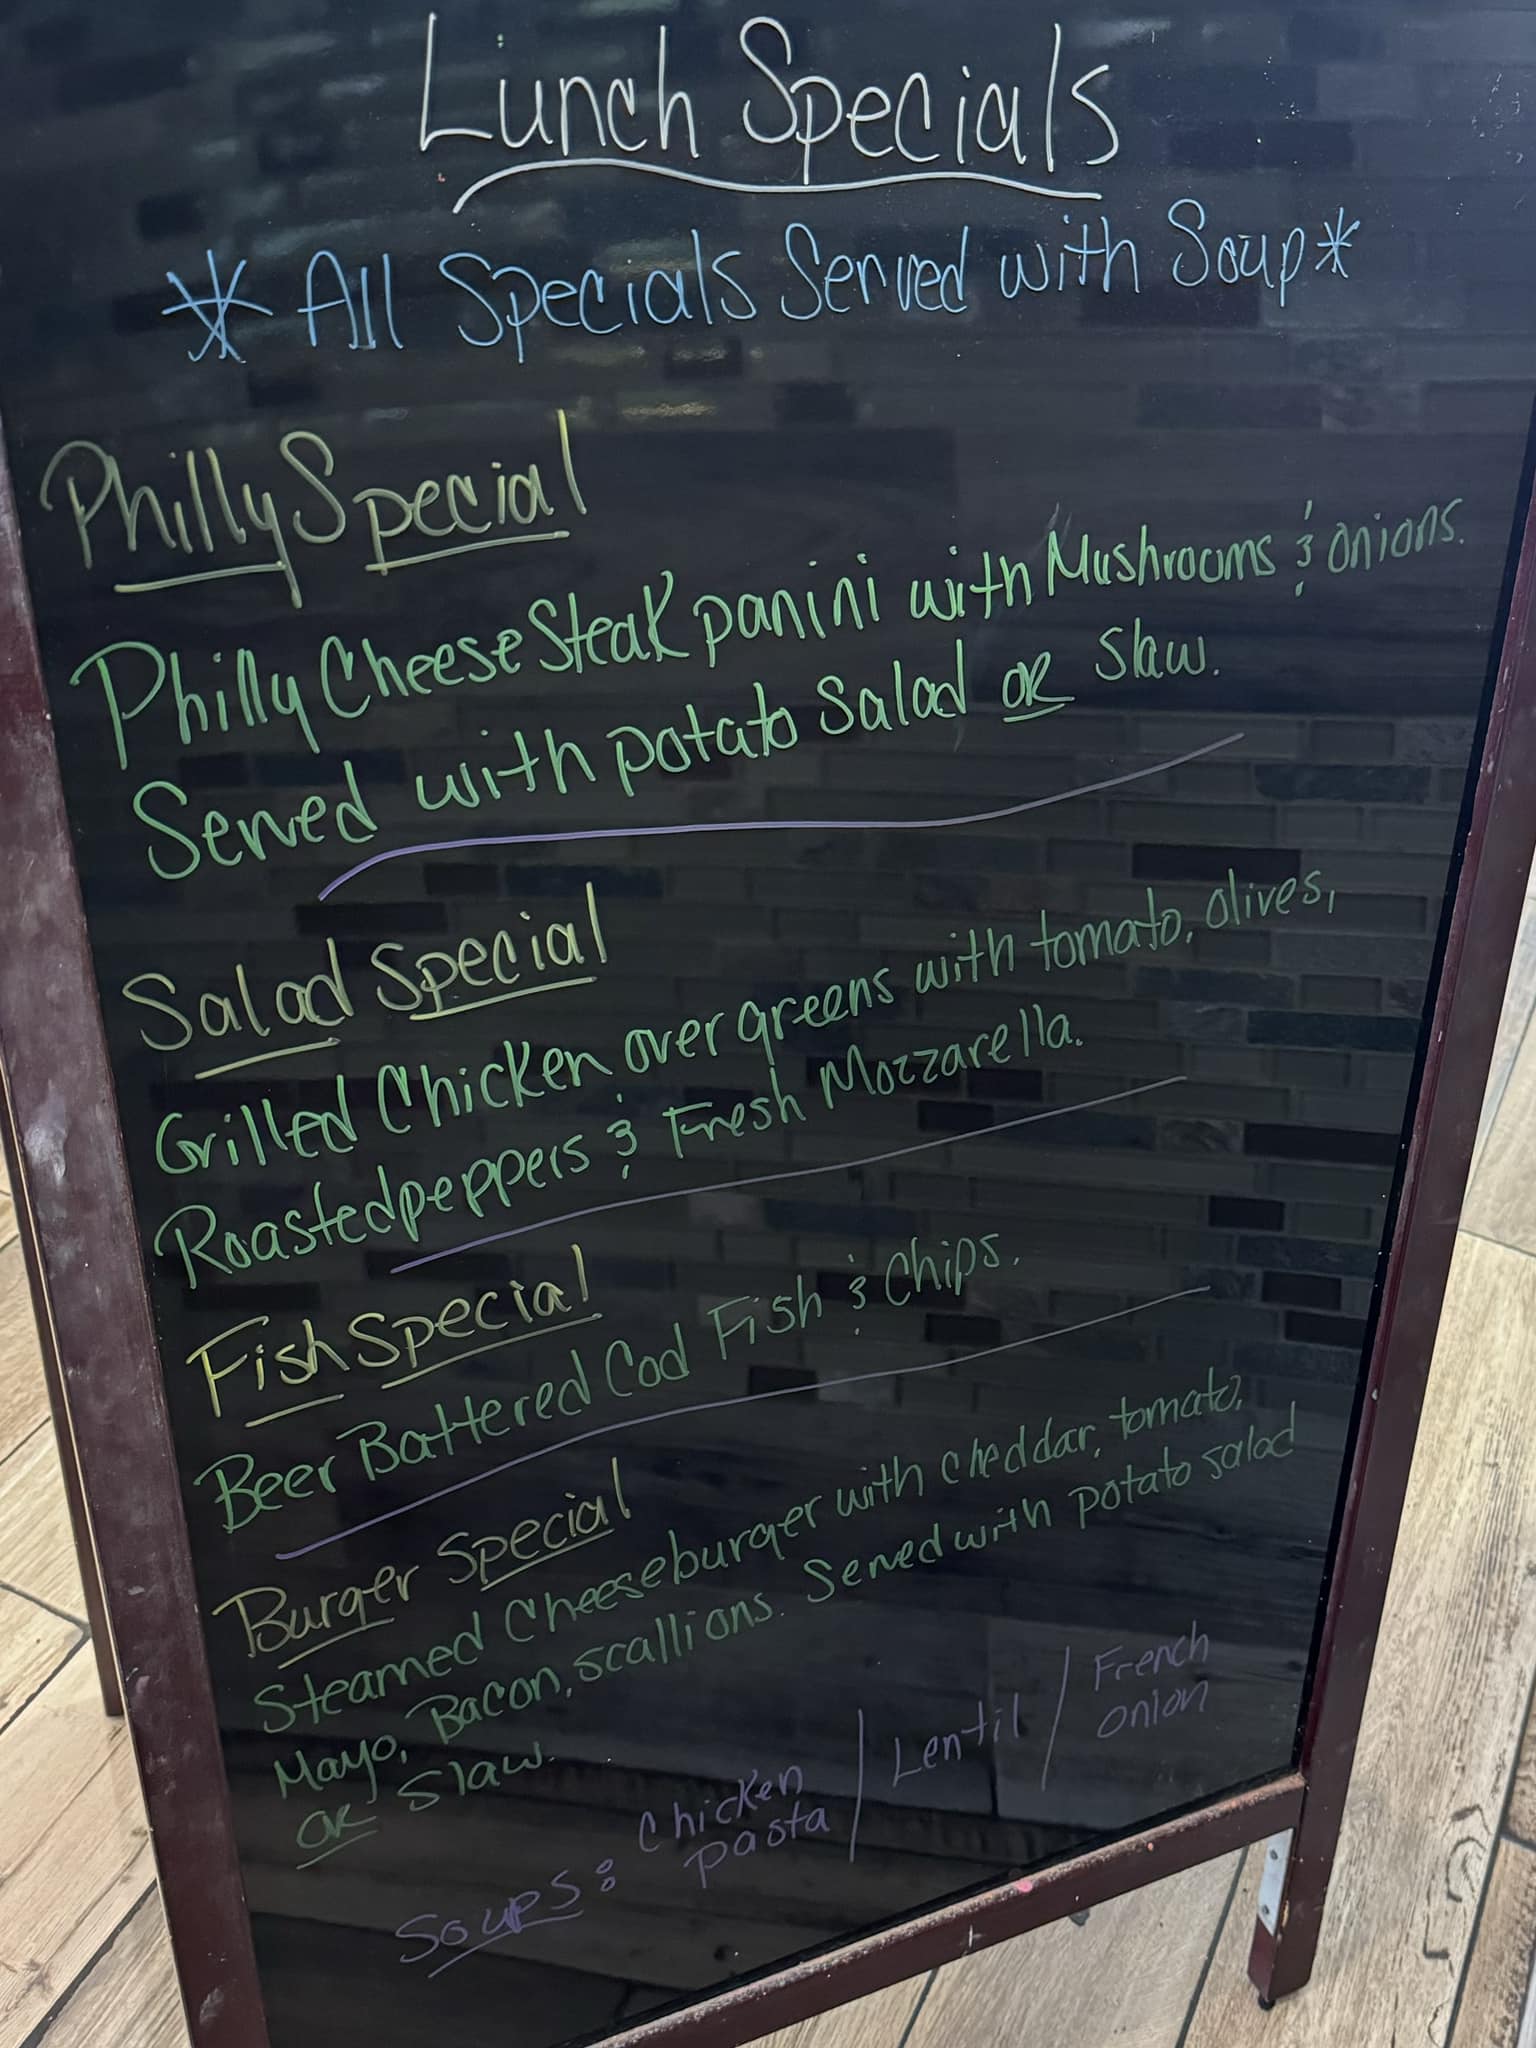 Lunch Specials
* All Specials Served with Soup *
Philly Special
Philly Cheese Steak panini with Mushrooms & onions.
Served with potato Salad OR Slaw.
Salad Special
Grilled Chicken over greens with tomato, olives,
Roasted peppers & Fresh Mozzarella.
Fish Special
Beer Battered Cod Fish & Chips.
Burger Special
Steamed Cheeseburger with cheddar, tomato,
Mayo, Bacon, scallions. Served with potato salad
OR Slaw.
Soups: Chicken pasta / Lentil / French onion